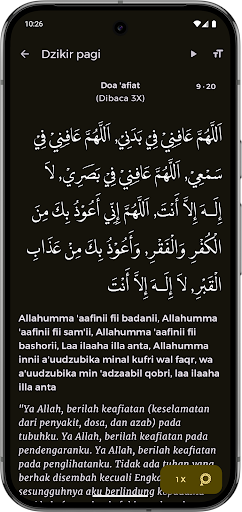 10:26
Dzikir pagi
Doa 'afiat
9 - 20
(Dibaca 3X)
اَللَّهُمَّ عَافِنِيْ فِيْ بَدَنِيْ, اَللَّهُمَّ عَافِنِيْ فِيْ
سَمْعِيْ, اَللَّهُمَّ عَافِنِيْ فِيْ بَصَرِيْ, لَا
إِلَـهَ إِلاَّ أَنْتَ, اَللَّهُمَّ إِنِّي أَعُوْذُ بِكَ مِنَ
الْكُفْرِ وَالْفَقْرِ, وَأَعُوْذُ بِكَ مِنْ عَذَابِ
الْقَبْرِ, لَا إِلَـهَ إِلاَّ أَنْتَ
Allahumma 'aafinii fii badanii, Allahumma
'aafinii fii sam'ii, Allahumma 'aafinii fii
bashorii, Laa ilaaha illa anta, Allahumma
innii a'uudzubika minal kufri wal faqr, wa
a'uudzubika min 'adzaabil qobri, laa ilaaha
illa anta
"Ya Allah, berilah keafiatan (keselamatan
dari penyakit, dosa, dan azab) pada
tubuhku. Ya Allah, berilah keafiatan pada
pendengaranku. Ya Allah, berilah keafiatan
pada penglihatanku. Tidak ada tuhan yang
berhak disembah kecuali Engkau
sesungguhnya aku berlindung kepada
1 X